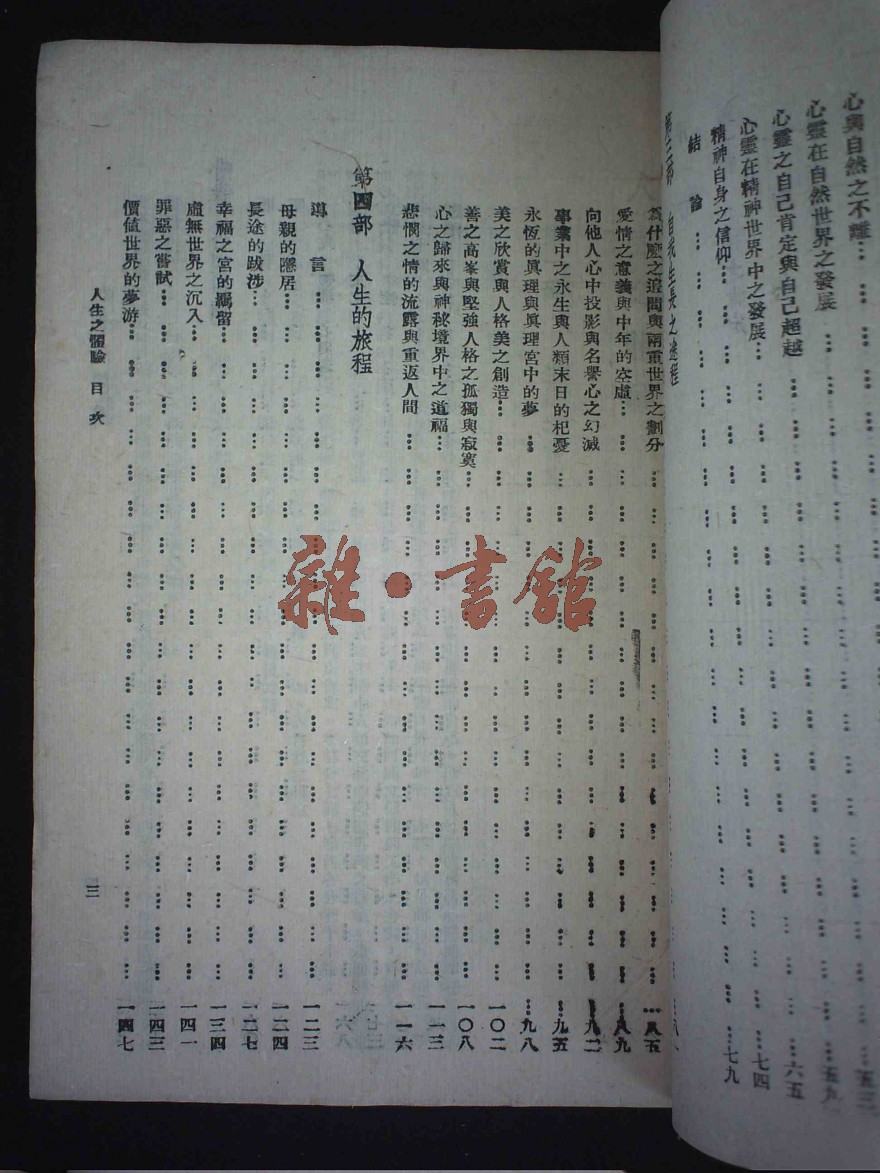 心與自然之不離…五三
心靈在自然世界之發展…五九
心靈之自己肯定與自己超越…六五
心靈在精神世界中之發展…七四
精神自身之信仰…七九
結論
第三部 自我生長之途程
為什麼之追問與兩重世界之劃分…八五
愛情之意義與中年的空虛…八九
向他人心中投影與名譽心之幻滅…九二
事業中之永生與人類末日的杞憂…九五
永恆的眞理與眞理宮中的夢…九八
美之欣賞與人格美之創造…一〇二
善之高峯與堅強人格之孤獨與寂寞…一〇八
心之歸來與神秘境界中之道福…一一三
悲憫之情的流露與重返人間…一一六
第四部 人生的旅程
導言…一二三
母親的隱居…一二四
長途的跋涉…一二七
幸福之宮的羈留…一三四
虛無世界之沉入…一四一
罪惡之嘗試…一四三
價値世界的夢游…一四七
人生之體驗 目次
三
雜·書館